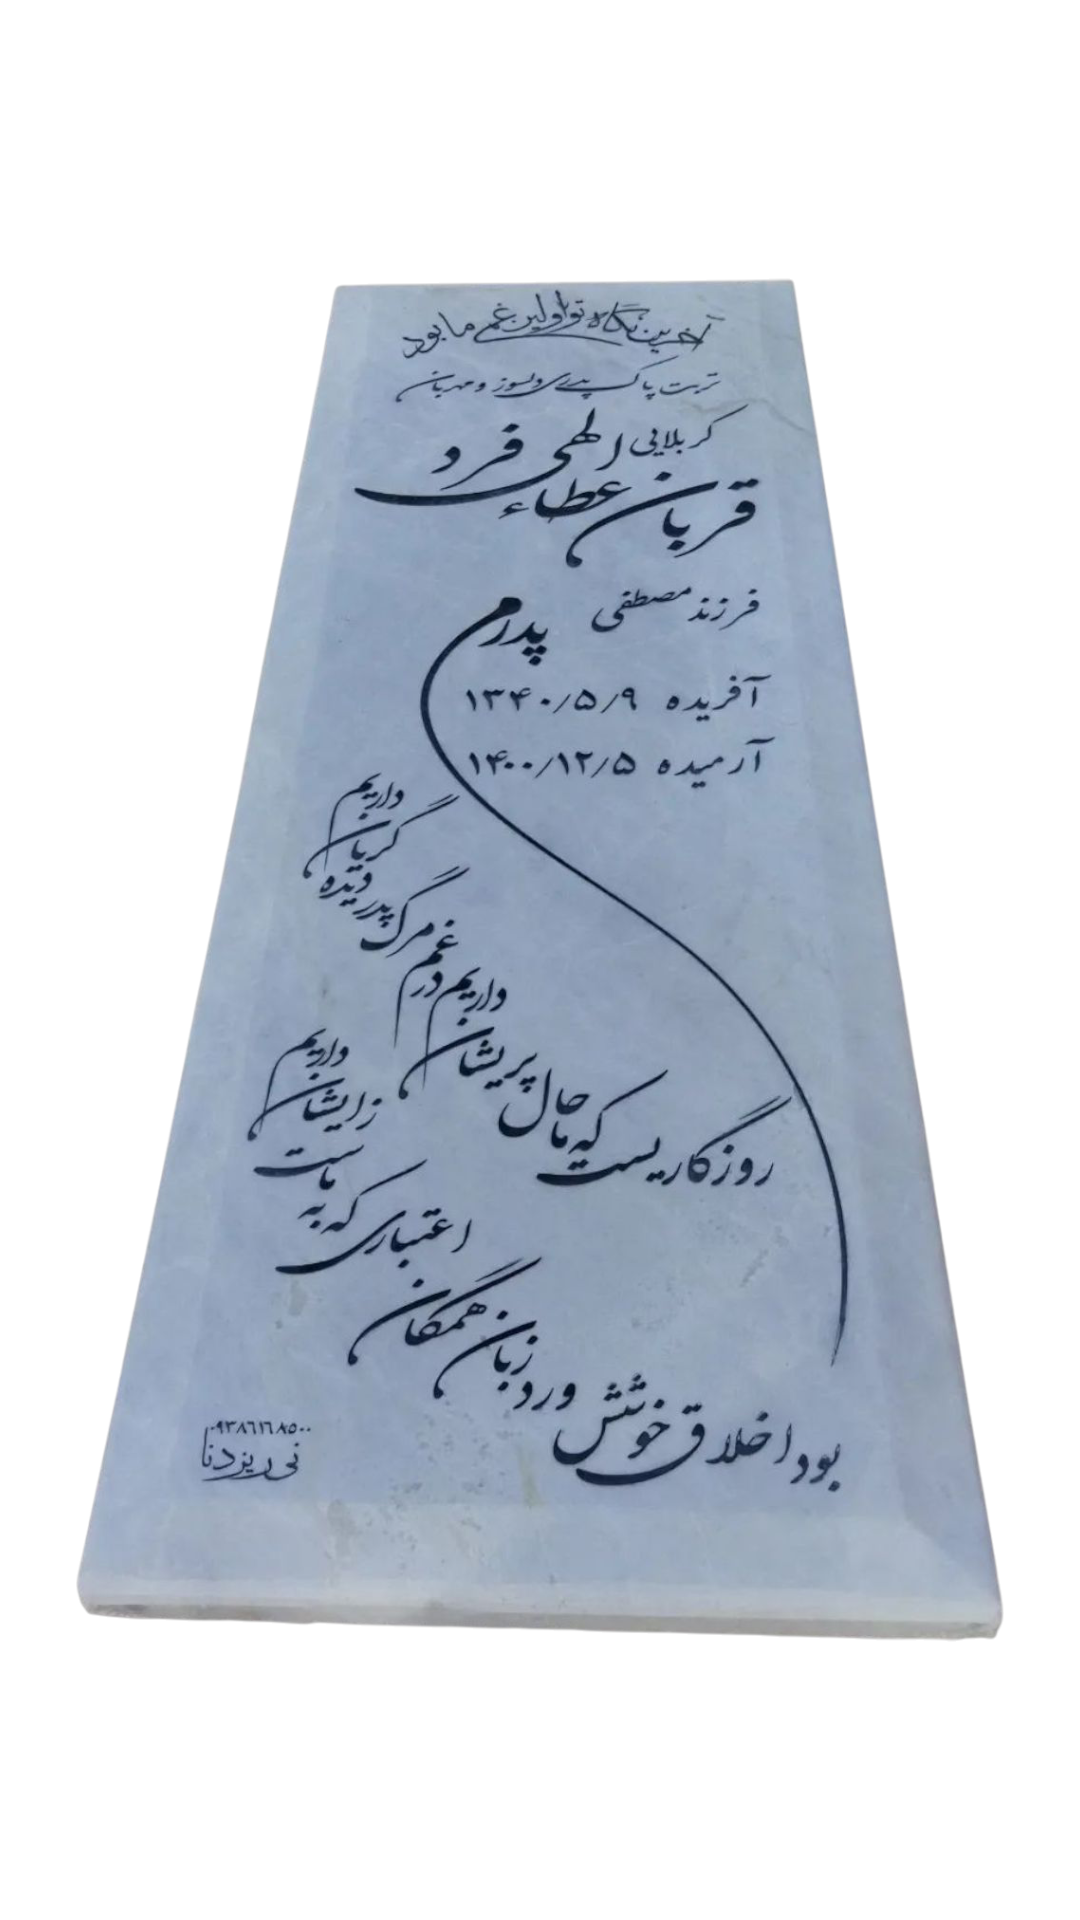 آخرین نگاه تو اولین غم ما بود
تربت پاک پدری دلسوز و مهربان
کربلایی
قربان عطاء الهی فرد
فرزند مصطفی
پدرم
آفریده ۱۳۴۰/۵/۹
آرمیده ۱۴۰۰/۱۲/۵
روزگاریست که ما حال پریشان داریم
در غم مرگ پدر دیده گریان داریم
بود اخلاق خوشش ورد زبان همگان
اعتباری که به ماست زایشان داریم
۰۹۳۸۶۱۶۸۵۰۰
نی ریز دنا